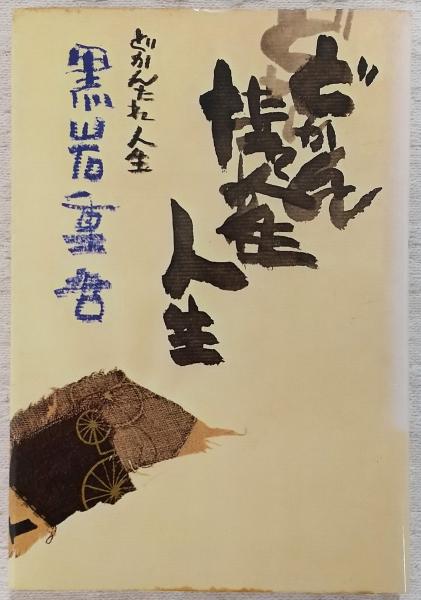 どかん
たれ人生
人生
どかんたれ人生
黒岩重吾